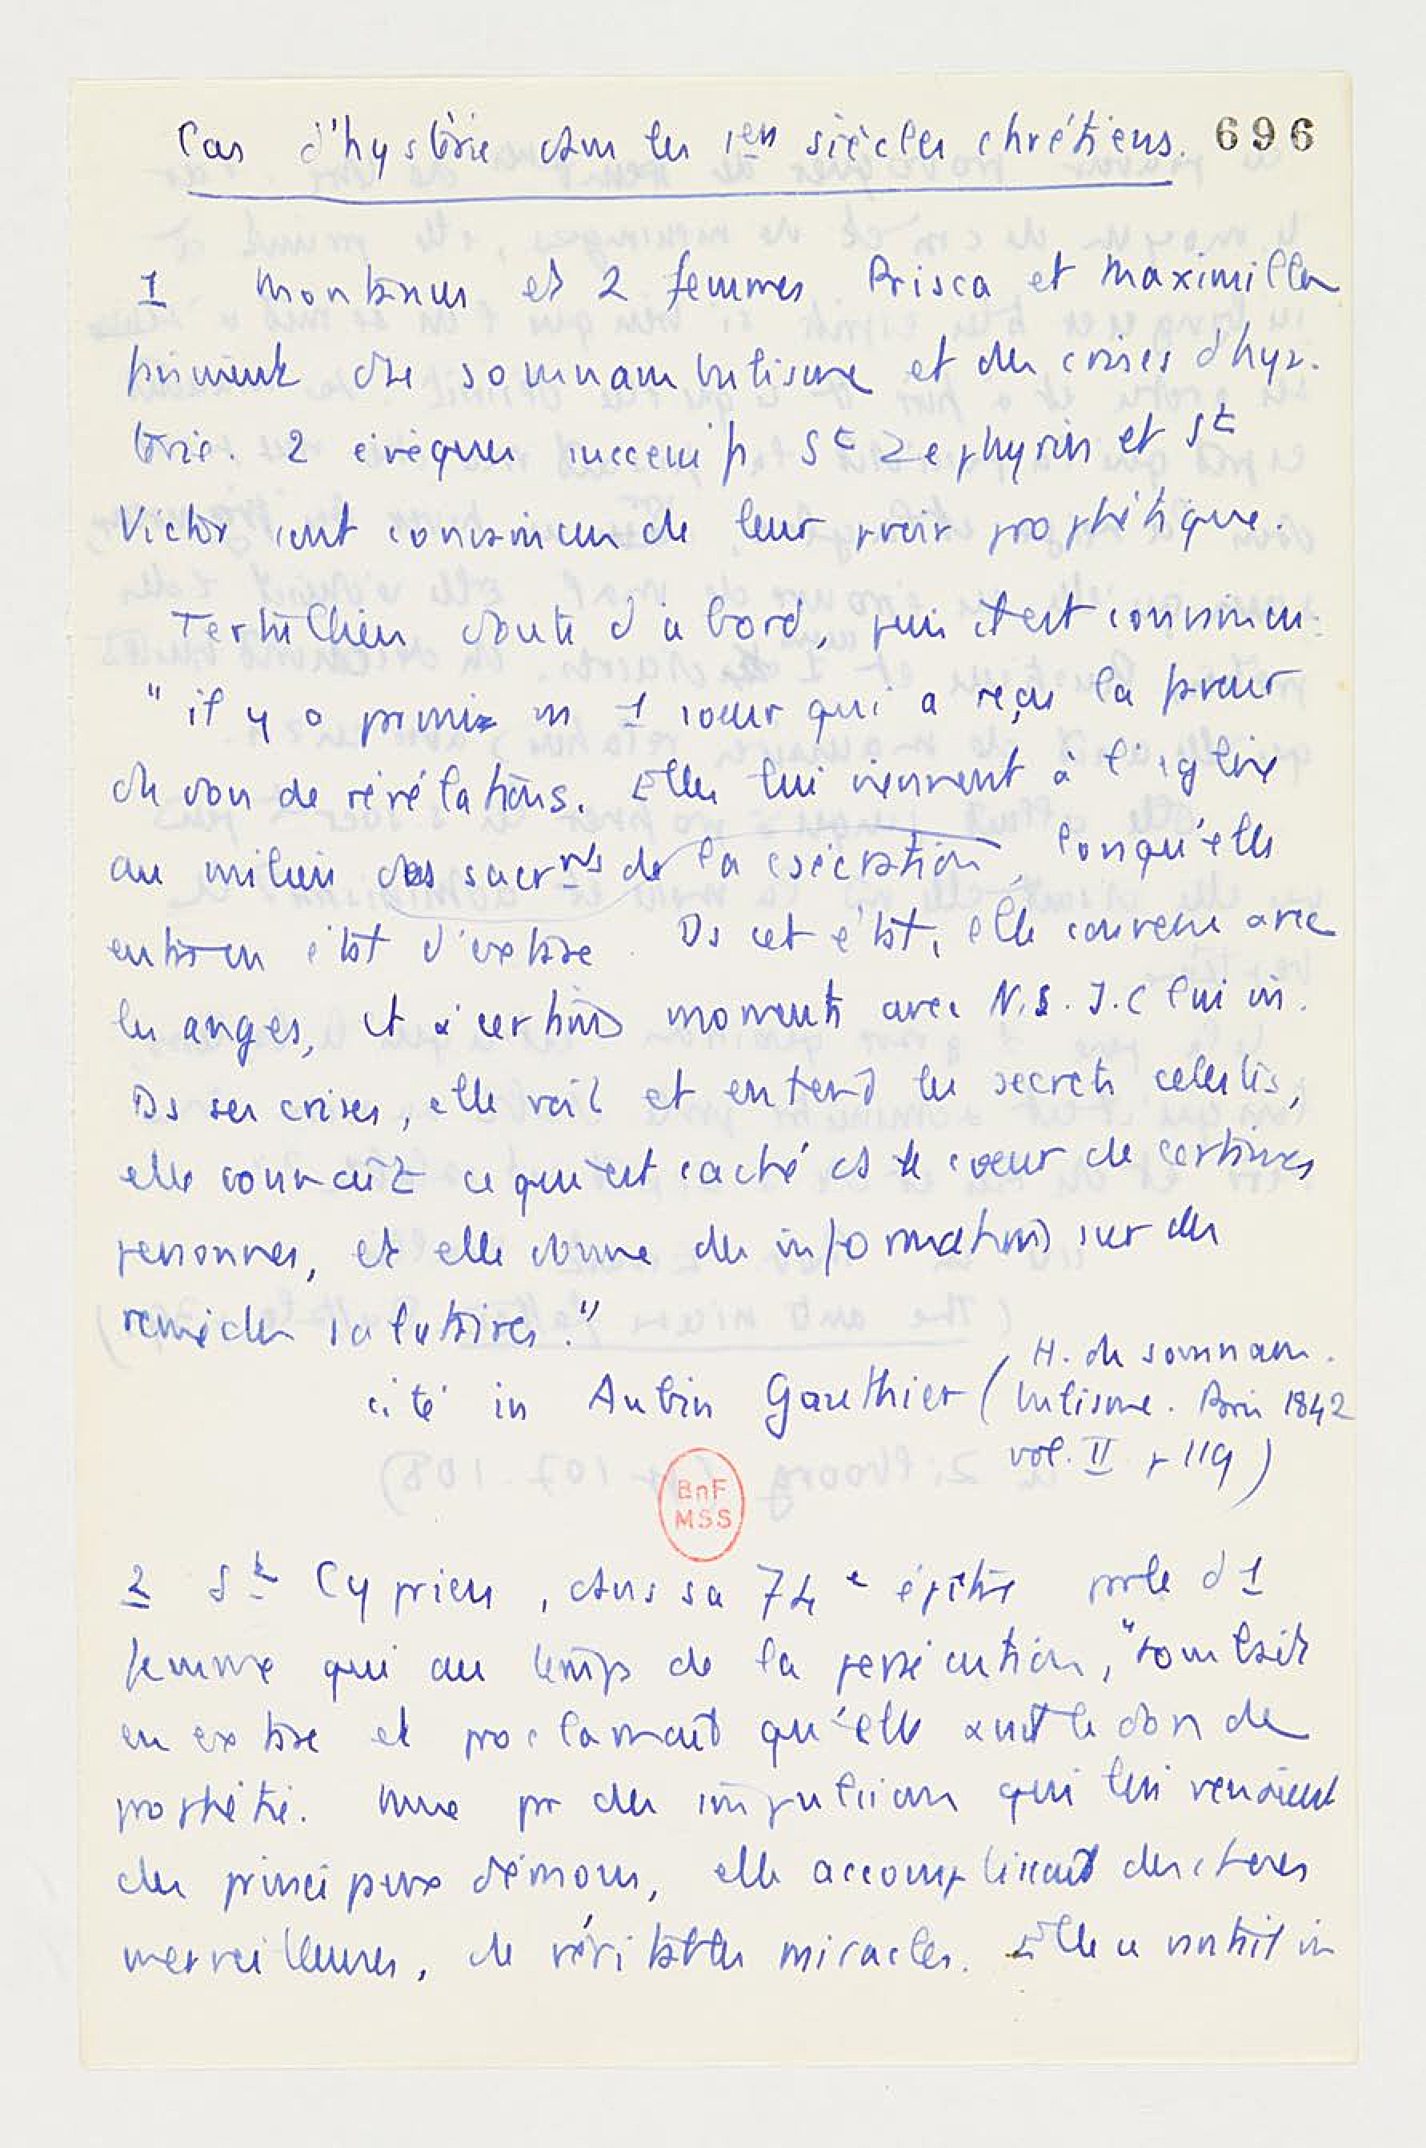 Cas d'hystérie dans les 1ers siècles chrétiens. 696
1 Montanus et 2 femmes Prisca et Maximilla
prirent de somnambulisme et des crises d'hys-
térie. 2 évèques successifs St Zephyrin et St
Victor sont convaincus de leur pvoir prophétique.
Tertullien doute d'abord, puis il est convaincu:
"il y a parmi ns 1 soeur qui a reçu la faveur
du don de révélations. Elles lui viennent à l'église
au milieu des sacrnts de la , lorsqu'elle
entre en état d'extase. Ds cet état, elle converse avec
les anges, et à certains moments avec N.S. J.C lui m.
Ds ses crises, elle voit et entend les secrets celestes,
elle connait ce qui est caché ds le coeur de certaines
personnes, et elle donne des informations sur des
remèdes salutaires."
cité in Aubin Gauthier (H. du somnam-
bulisme. Paris 1842
vol. II p 119)
BnF
MSS
2 St Cyprien, dans sa 74e épitre parle d'1
femme qui au temps de la persécution, "tombait
en extase et proclamait qu'elle avait le don de
prophétie. Mue par des impulsions qui lui venaient
des principaux démons, elle accomplissait des choses
merveilleuses, de véritables miracles. Elle a